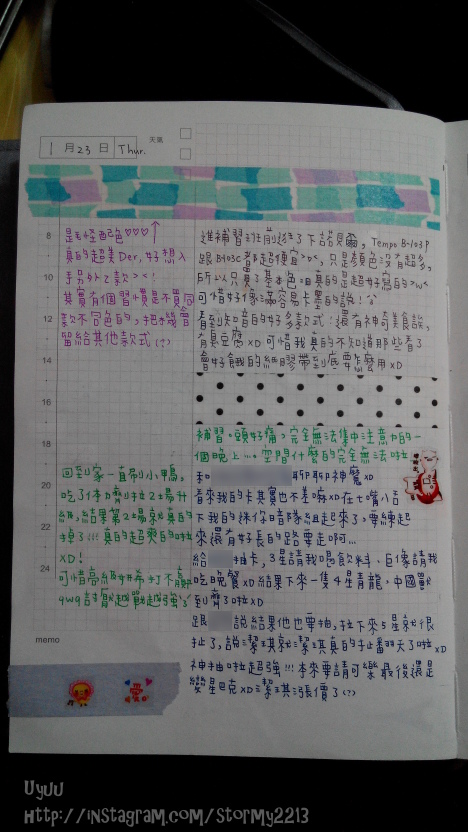 1月23日 Thur.
天氣
8
10
12
14
16
18
20
22
24
是怪配色♡♡♡↑
真的超美Der,好想入
手另外2款><!
其實有個習慣是不買同
款不同色的,把機會
留給其他款式(?)
進補習班前繞去了下諾貝爾,Tempo B-103P
跟B403C者都超便宜><,只是顏色沒有超多,
所以只買了基本色,但真的是超好寫的>w<
可惜好像滿容易卡墨的說!
看到知音的好多款式!還有神奇美食說,
有臭豆腐xD可惜我真的不知道那些看了
會好餓的紙膠帶到底要怎麼用xD
補習。頭好痛。完全無法集中注意力的一
個晚上...。空間什麼的完全無法啦
和 聊聊神魔xD
看來我的卡其實也不差嘛xD在七嘴八舌
下我的徠伢暗隊組起來了,要練起
來還有好長的路要走啊...
給 抽卡,3星請我喝飲料、巨像請我
吃晚餐xD結果下來一隻4星青龍,中國獸
到齊了啦xD
跟 說結果他也要抽,拉下來5星就很
扯了,說潔淇就潔淇真的扯翻天了啦xD
神抽啦超強!!!本來要請可樂最後還是
變星巴克xD潔淇漲價了(?)
回到家一直刷小鴨,
吃了1体力劑拉2場升
級,結果第2場就真的
掉了!!!真的超爽的啦
xD!
可惜高級好希打不贏
qwq討厭越戰越強><
memo
Uyuu
Http://instagram.com/stormy2213